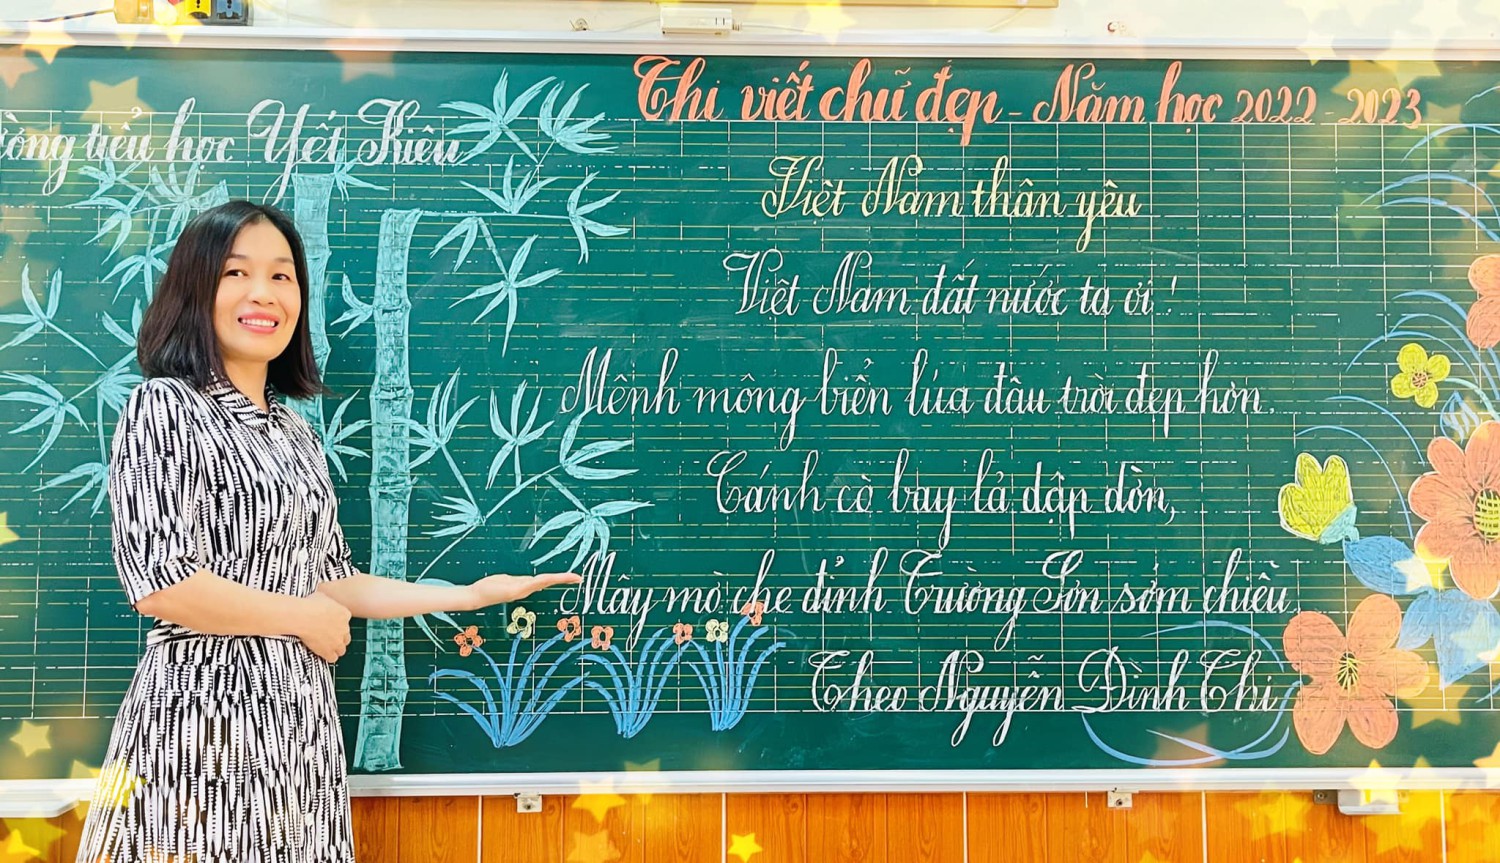 ường tiểu học Yết Kiêu
Thi viết chữ đẹp - Năm học 2022 - 2023
Việt Nam thân yêu
Việt Nam đất nước ta ơi !
Mênh mông biển lúa đâu trời đẹp hơn.
Cánh cò bay lả dập dờn,
Mây mờ che đỉnh Trường Sơn sớm chiều
Theo Nguyễn Đình Thi